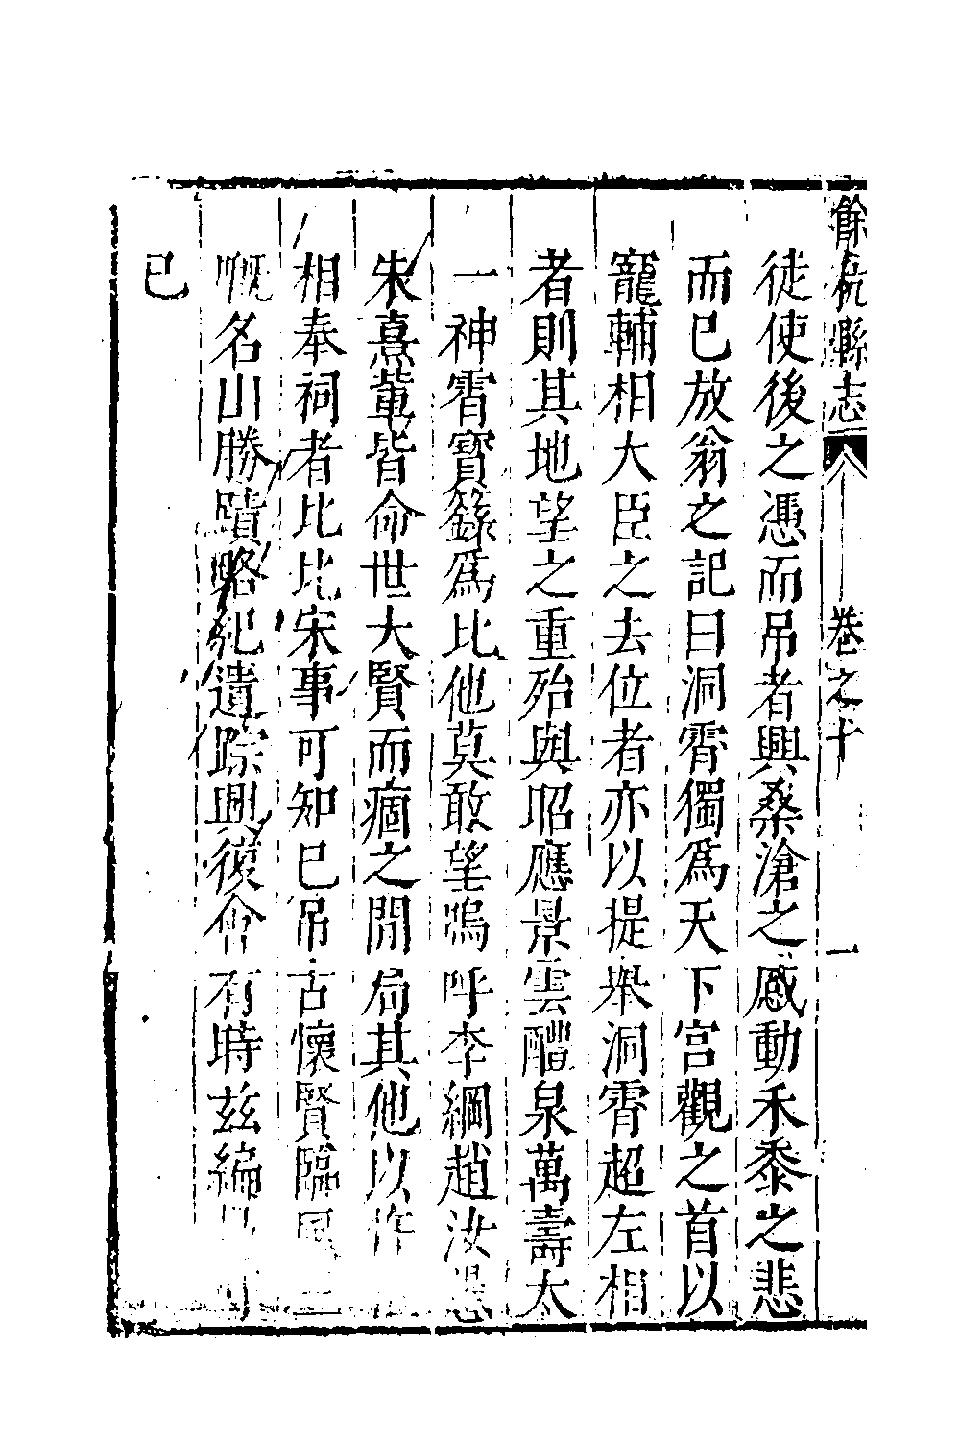 餘杭縣志 卷之十 一
徒使後之憑而吊者興桑滄之感動禾黍之悲
而已放翁之記曰洞霄獨爲天下宮觀之首以
寵輔相大臣之去位者亦以提舉洞霄超左相
者則其地望之重殆與昭應景雲醴泉萬壽太
一神霄寶籙爲比他莫敢望嗚呼李綱趙汝愚
朱熹軰皆命世大賢而痼之閒局其他以許
相奉祠者比比宋事可知已吊古懷賢臨風三
嘅名山勝蹟略紀遺踪興復會有時兹編
已